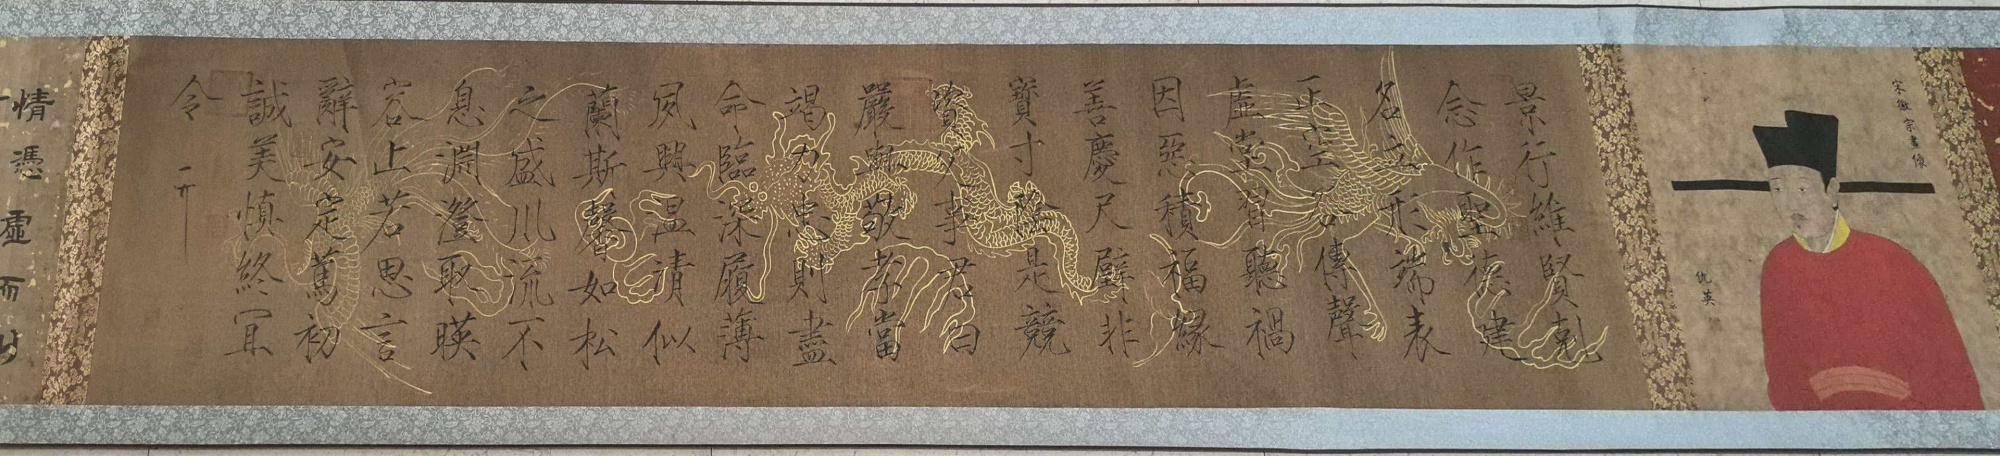 宋徽宗畫像
仇英
景行維賢剋
念作聖德建
名立形端表
正空谷傳聲
虛堂習聽禍
因惡積福緣
善慶尺璧非
寶寸陰是競
資父事君曰
嚴與敬孝當
竭力忠則盡
命臨深履薄
夙興温清似
蘭斯馨如松
之盛川流不
息淵澄取暎
容止若思言
辭安定篤初
誠美慎終宜
令
情憑虛而